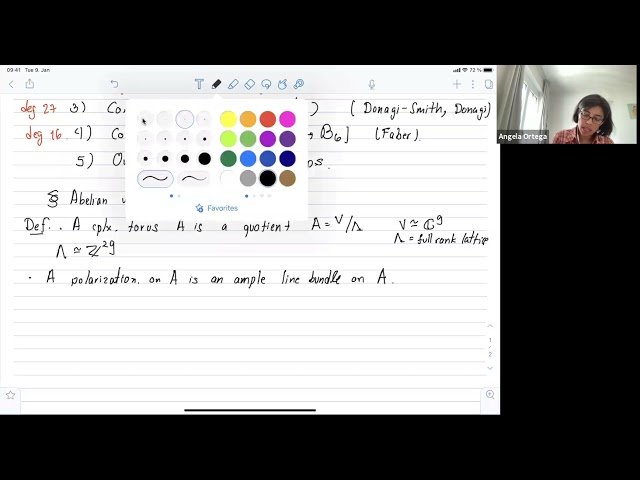 09:41 Tue 9. Jan
72 %
T
deg 27 3) Co ) (Donagi-Smith, Donagi)
deg 16. 4) Co B₆] (Faber)
5) os.
§ Abelian
Def. . A cplx. torus A is a quotient A = V/Λ V ≃ ℂ^g
Λ ≃ ℤ^2g Λ = full rank lattice
. A polarization on A is an ample line bundle on A.
Favorites
1
2
Angela Ortega